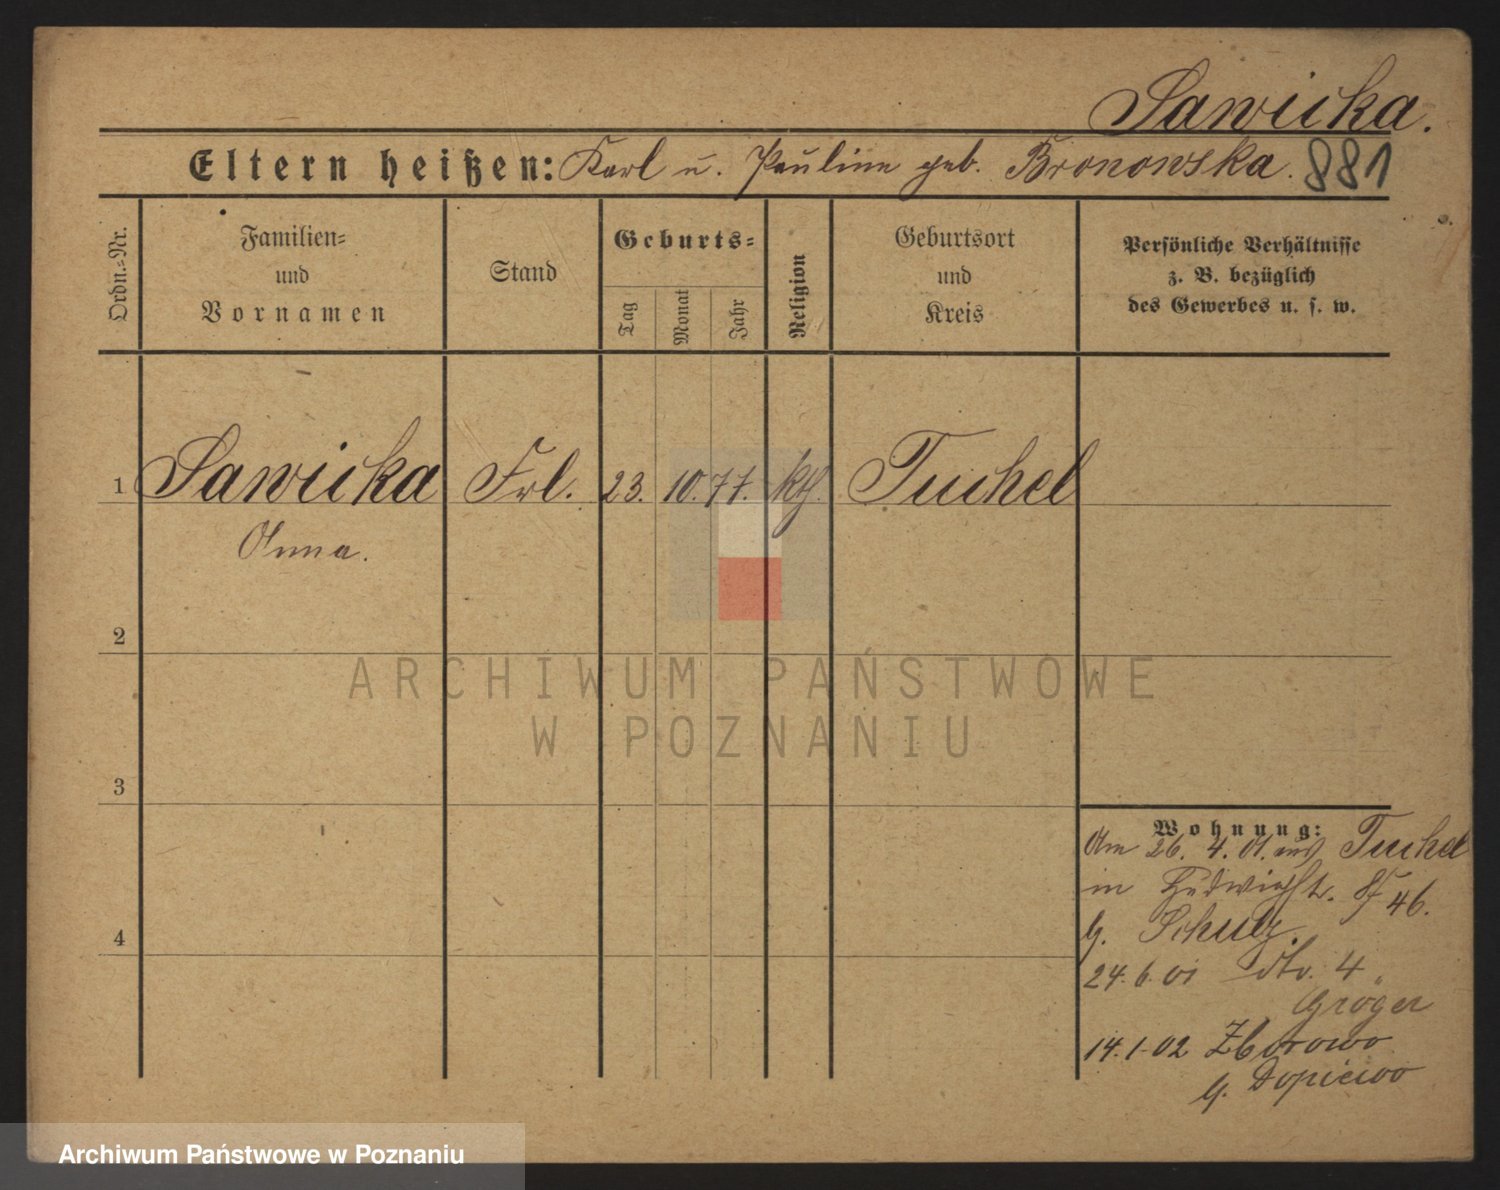 Sawicka.
Eltern heißen: Karl u. Pauline geb. Bronowska. 881
Ordn.-Nr.
Familien-
und
Vornamen
Stand
Geburts-
Tag
Monat
Jahr
Religion
Geburtsort
und
Kreis
Persönliche Verhältnisse
z. B. bezüglich
des Gewerbes u. s. w.
1 Sawicka Frl. 23. 10. 77. kth. Tuchel
Anna.
2
3
4
Wohnung:
Am 26. 4. 01. aus Tuchel
in 46.
b. Schulz.
24. 6. 01 dto. 4
Gröger
14. 1. 02 Zborowo
b. Dopiewo
ARCHIWUM PAŃSTWOWE
W POZNANIU
Archiwum Państwowe w Poznaniu